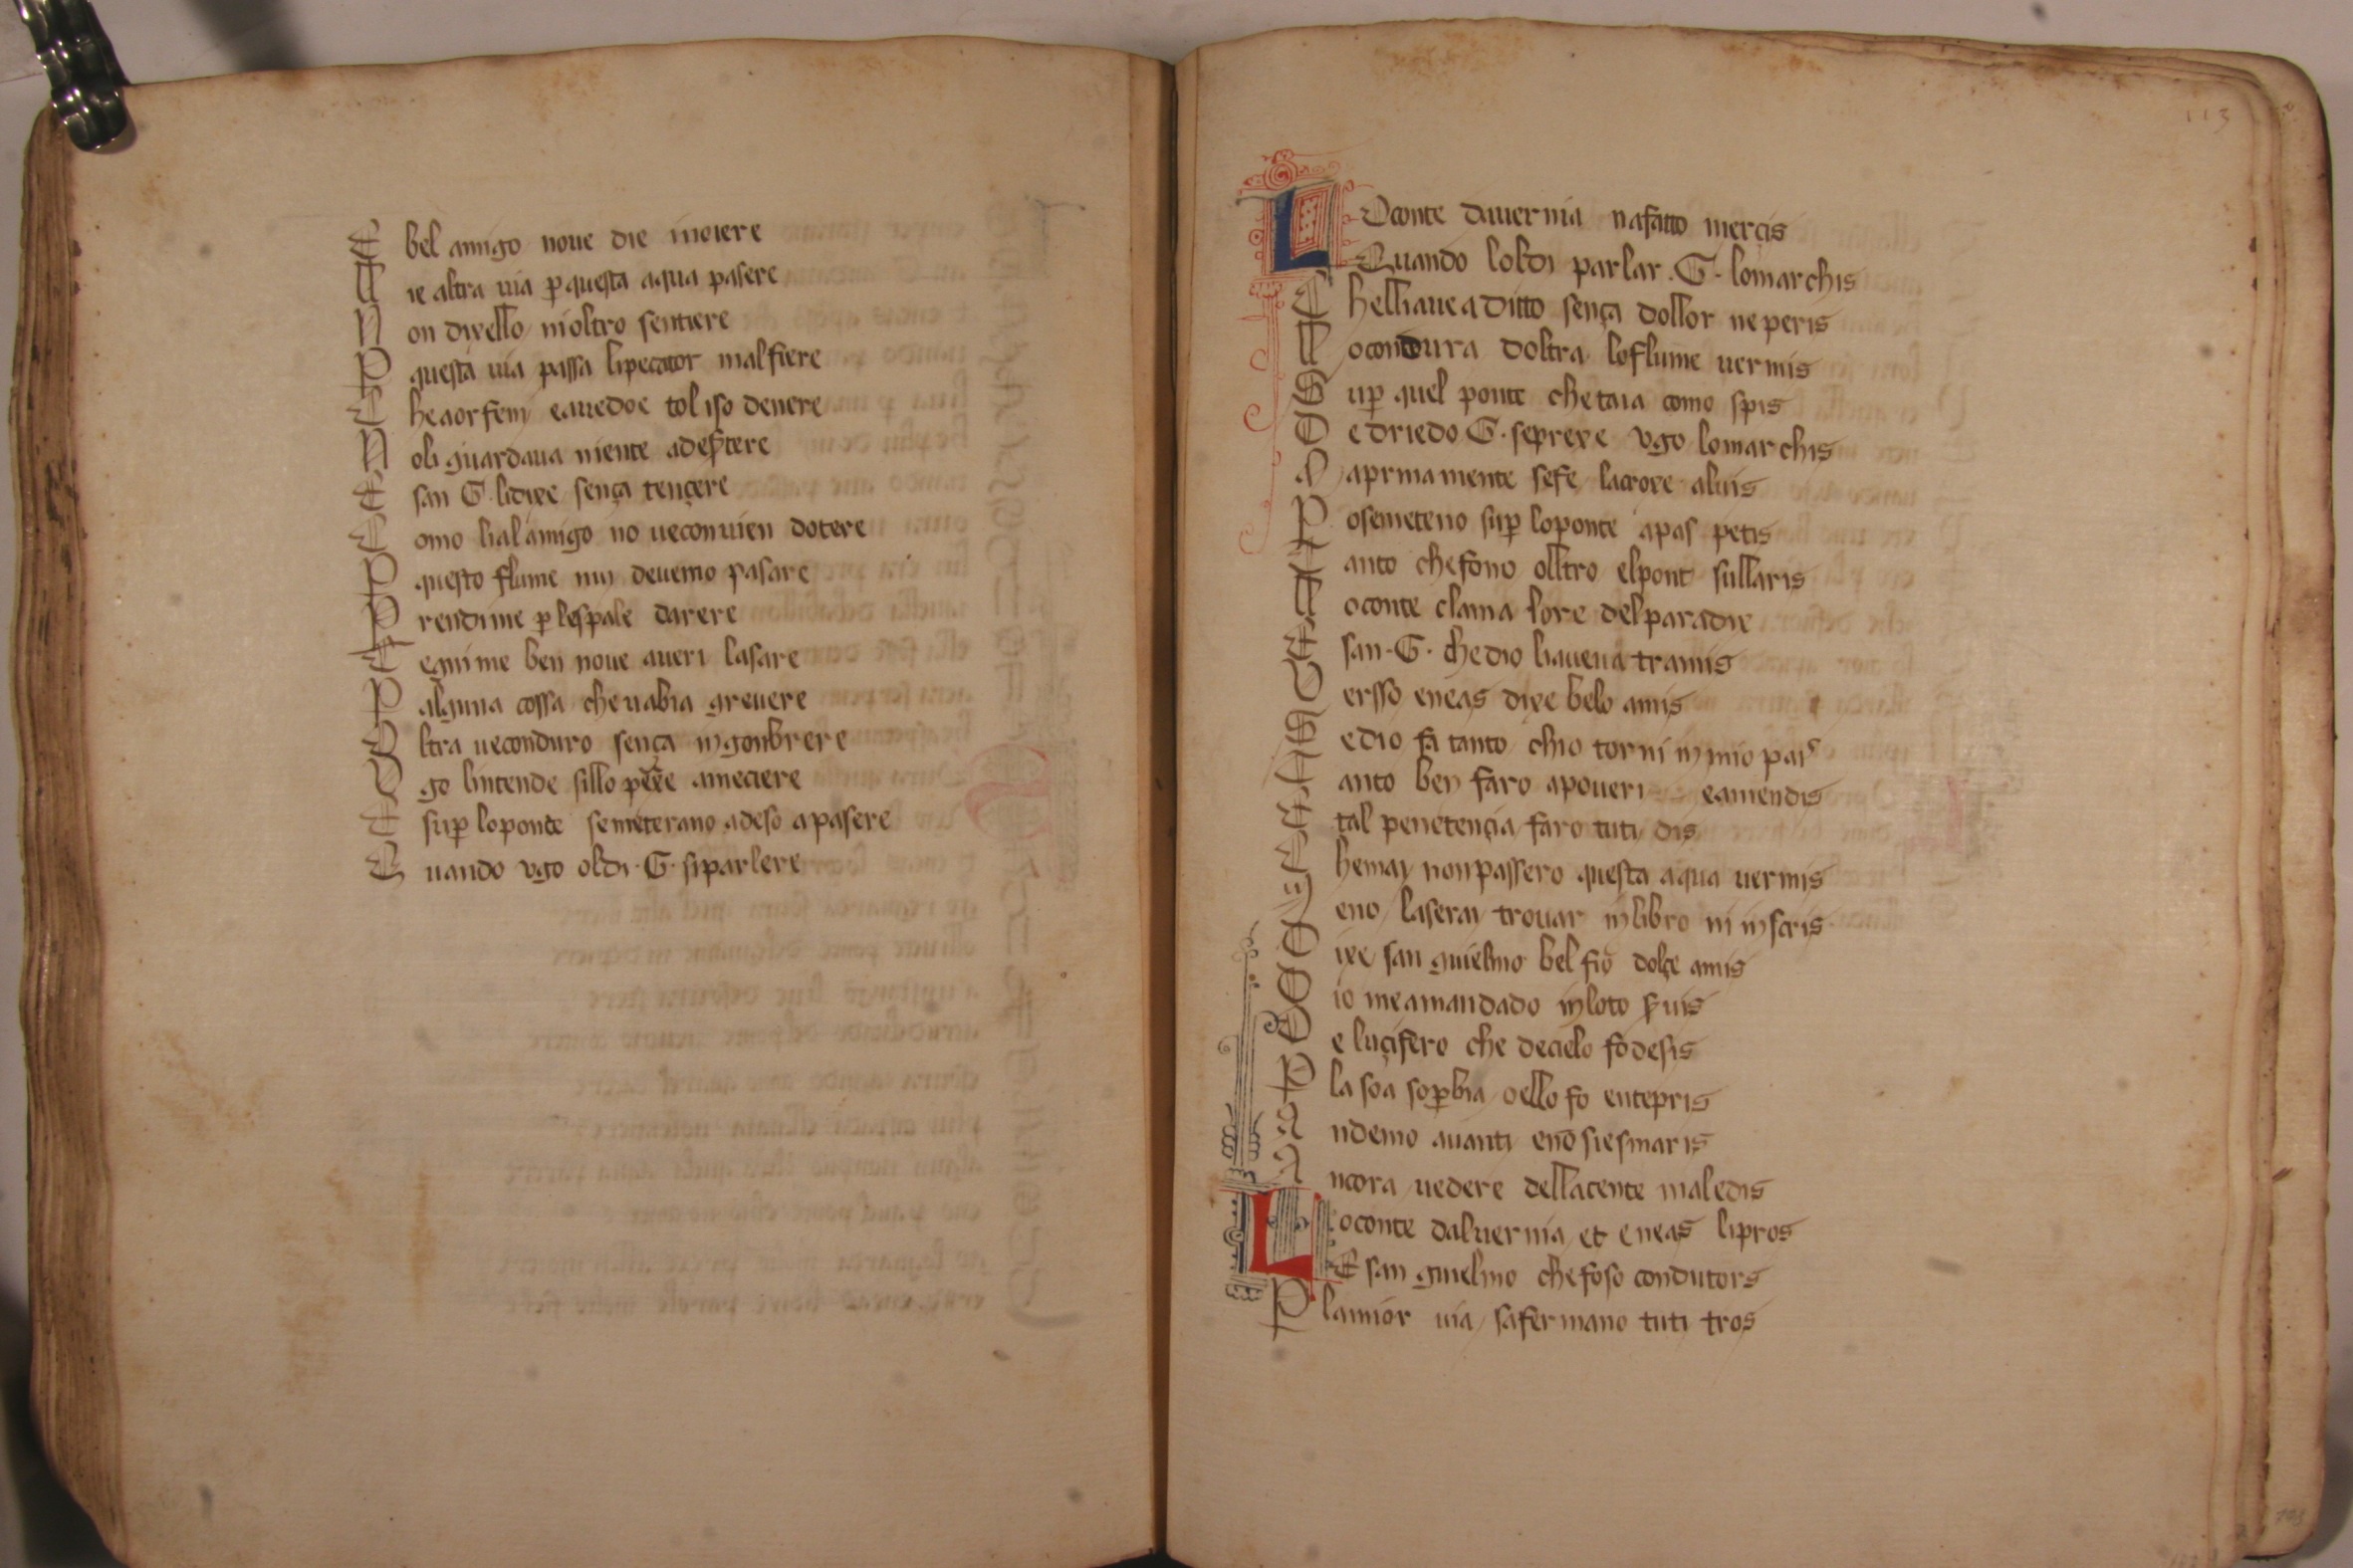 E bel amigo noue die inoiere
Ll ie altra uia p questa aqua pasere
N on dixello ni oltro sentiere
P questa uia passa li pecator mal fiere
C he a orfem e a uedoe tol iso deuere
N oli guardaua niente adeptere
E san G. li dixe sença tençere
C omo lial amigo no ue conuien dotere
P questo flume nuy deuemo pasare
P rendi me p le spale darere
T egni me ben noue aueri lasare
P alguna cossa che uabia greuere
O ltra ue conduro sença ingonbrere
V go lintende sillo pexe ameciere
E sup lo ponte se meterano adeso a pasere
Q uando vgo oldi .G. si parlere
113
LO conte dauernia na fatto merçis
Quando loldi parlar .G. lo marchis
C helli auea ditto sença dollor ne peris
Ll o condura doltra lo flume uermis
S up quel ponte che taia como spis
D e driedo G. se prexe vgo lo marchis
M a prima mente se fe la croxe al uis
P o se meteno sup lo ponte a pas petis
T anto che fono olltro el pont sullaris
Ll o conte clama lore del paradix
E san .G. che dio li aueua tramis
V ersso eneas dixe belo amis
S e dio fa tanto chio torni in mio pais
T anto ben faro a poueri e a mendis
E tal penetençia faro tuti dis
C he may non passero questa aqua uermis
eno laseray trouar in libro ni in scris
D ixe san guielmo bel fio dolçe amis
D io me a mandado in loto suis
D e luçifero che de cielo fo desis
P la soa sopbia oello fo entepris
A ndemo auanti eno si esmaris
A ncora uedere della cente maledis
L o conte daluernia et eneas li pros
E san guielmo che foso condutors
P la mior uia safermano tuti tros